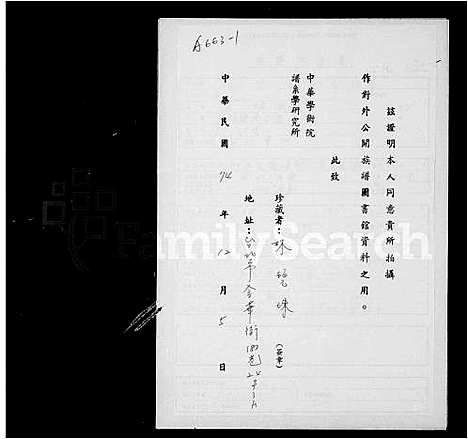 A663-1
茲證明本人同意貴所拍攝
作對外公開族譜圖書館資料之用。
此致
中華學術院
譜系學研究所
珍藏者：林 珠 (簽章)
地址：台北市金華街
中華民國 74 年 12 月 5 日
FamilySearch